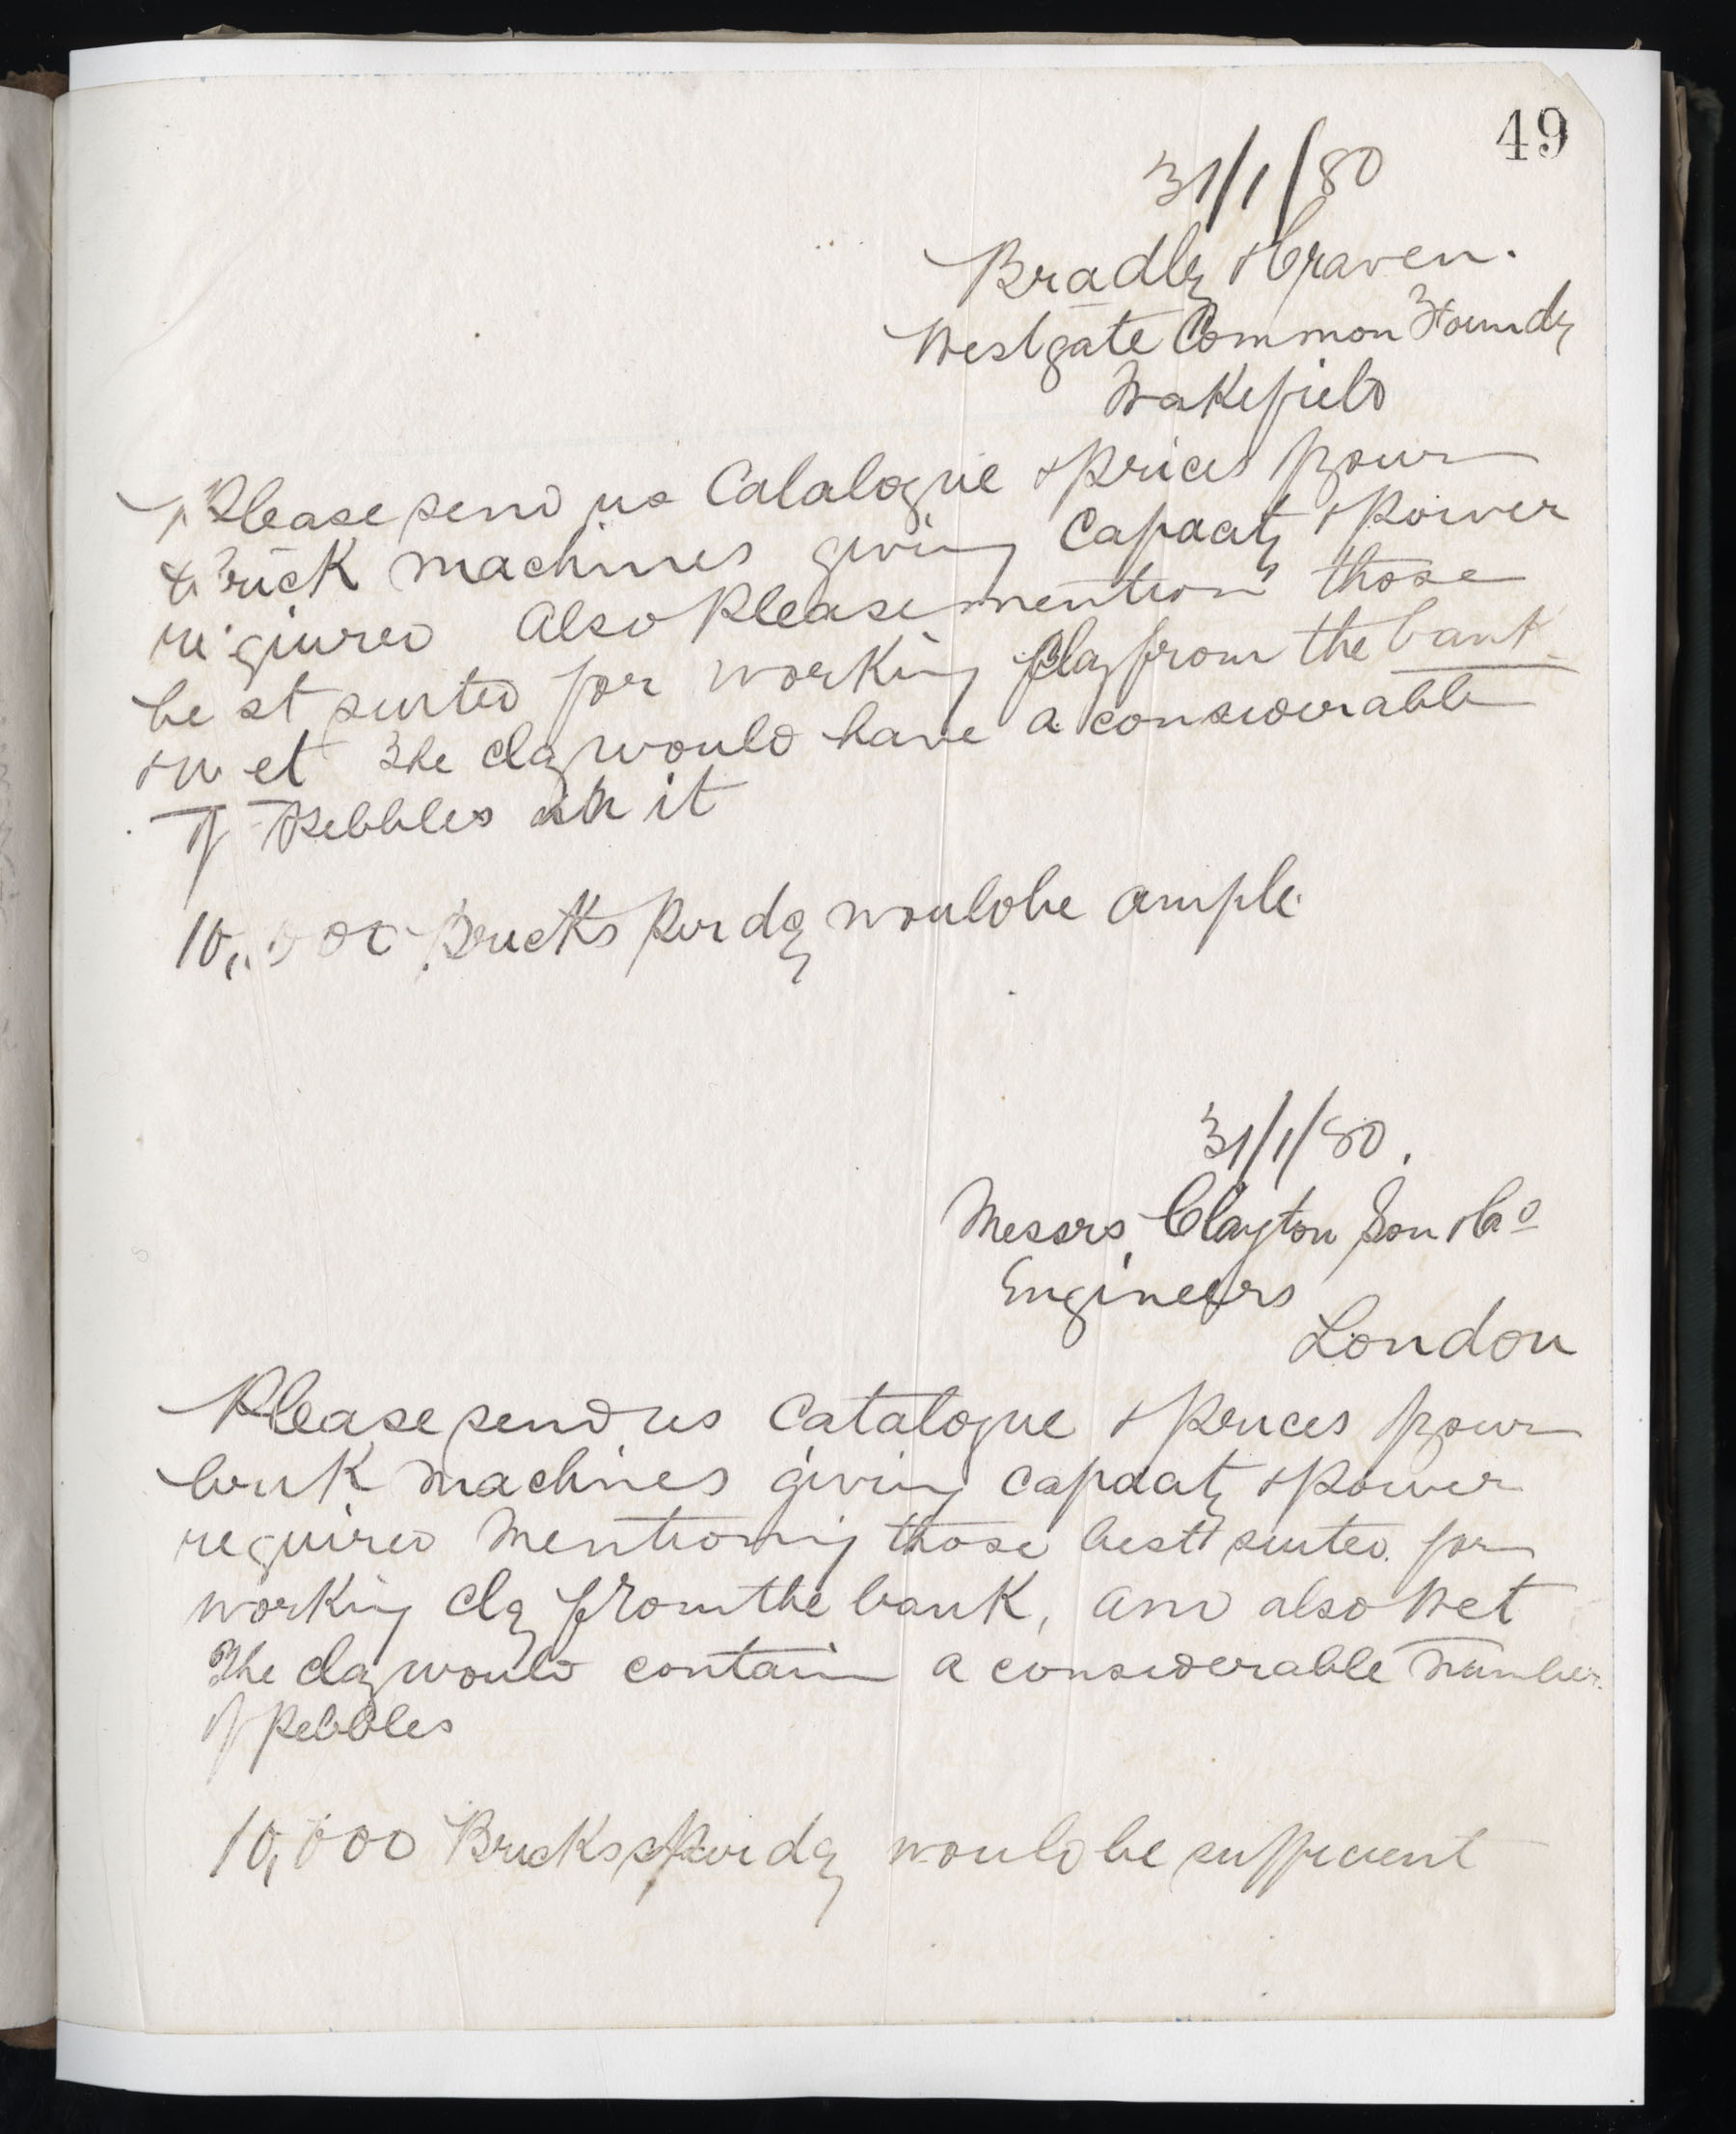 49
31/1/80
Bradly & Craven.
Westgate Common Foundy
Wakefield
Please send us Catalogue & prices of your
Brick machines giving Capacity & Power
required Also Please mention those
best suited for working Clay from the bank
& wet The clay would have a considerable
of Pebbles in it
10,000 Bricks Per day would be ample.
31/1/80.
Messrs Clayton Son & Co
Engineers
London
Please send us Catalogue & Prices of your
brick machines giving capacity & Power
required Mentioning those best suited for
working clay from the bank, and also Wet
The clay would contain a considerable Number
of Pebbles
10,000 Bricks Per day would be sufficient